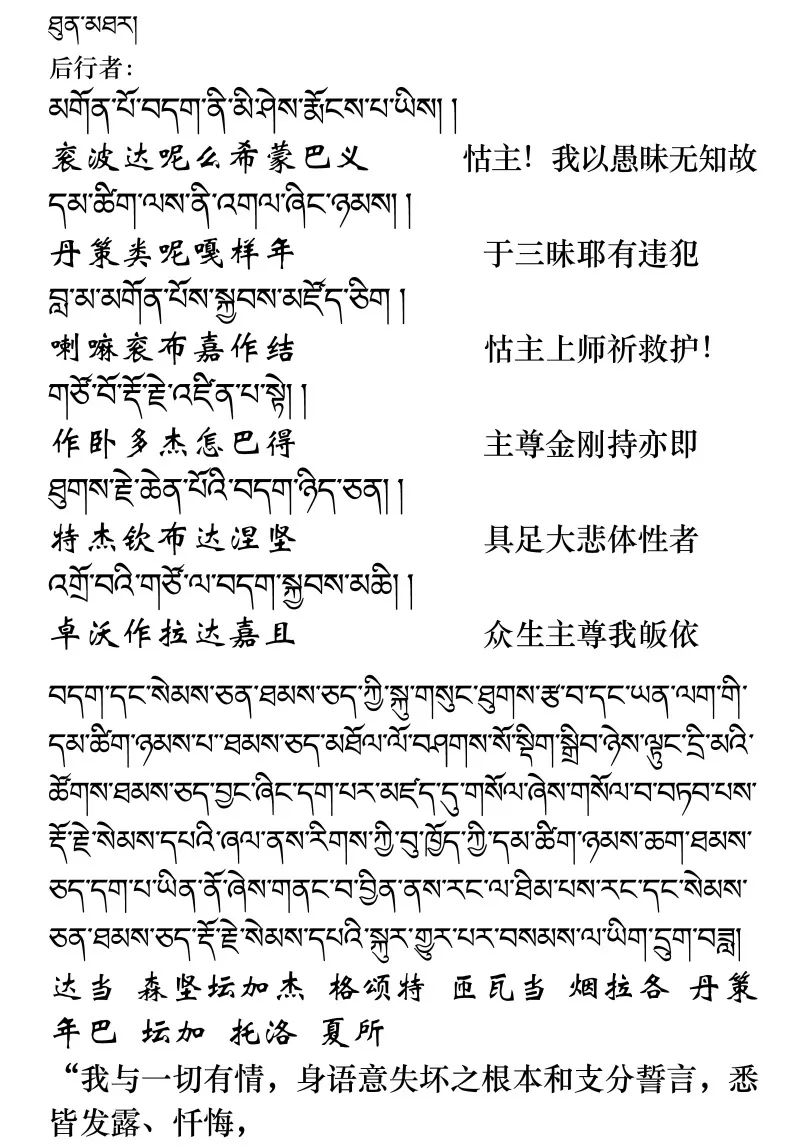 ཐུན་མཐར།
后行者：
མགོན་པོ་བདག་ནི་མི་ཤེས་རྨོངས་པ་ཡིས། །
衮波达呢么希蒙巴义 怙主！我以愚昧无知故
དམ་ཚིག་ལས་ནི་འགལ་ཞིང་ཉམས། །
丹策类呢嘎样年 于三昧耶有违犯
བླ་མ་མགོན་པོས་སྐྱབས་མཛོད་ཅིག །
喇嘛衮布嘉作结 怙主上师祈救护！
གཙོ་བོ་རྡོ་རྗེ་འཛིན་པ་སྟེ། །
作卧多杰怎巴得 主尊金刚持亦即
ཐུགས་རྗེ་ཆེན་པོའི་བདག་ཉིད་ཅན། །
特杰钦布达涅坚 具足大悲体性者
འགྲོ་བའི་གཙོ་ལ་བདག་སྐྱབས་མཆི། །
卓沃作拉达嘉且 众生主尊我皈依
བདག་དང་སེམས་ཅན་ཐམས་ཅད་ཀྱི་སྐུ་གསུང་ཐུགས་རྩ་བ་དང་ཡན་ལག་གི་
དམ་ཚིག་ཉམས་པ་ཐམས་ཅད་མཐོལ་ལོ་བཤགས་སོ་སྡིག་སྒྲིབ་ཉེས་ལྟུང་དྲི་མའི་
ཚོགས་ཐམས་ཅད་བྱང་ཞིང་དག་པར་མཛད་དུ་གསོལ་ཞེས་གསོལ་བ་བཏབ་པས་
རྡོ་རྗེ་སེམས་དཔའི་ཞལ་ནས་རིགས་ཀྱི་བུ་ཁྱོད་ཀྱི་དམ་ཚིག་ཉམས་ཆག་ཐམས་
ཅད་དག་པ་ཡིན་ནོ་ཞེས་གནང་བ་བྱིན་ནས་རང་ལ་ཐིམ་པས་རང་དང་སེམས་
ཅན་ཐམས་ཅད་རྡོ་རྗེ་སེམས་དཔའི་སྐུར་གྱུར་པར་བསམས་ལ་ཡིག་དྲུག་བཟླ།
达当 森坚坛加杰 格颂特 匝瓦当 烟拉各 丹策
年巴 坛加 托洛 夏所
“我与一切有情，身语意失坏之根本和支分誓言，悉
皆发露、忏悔，